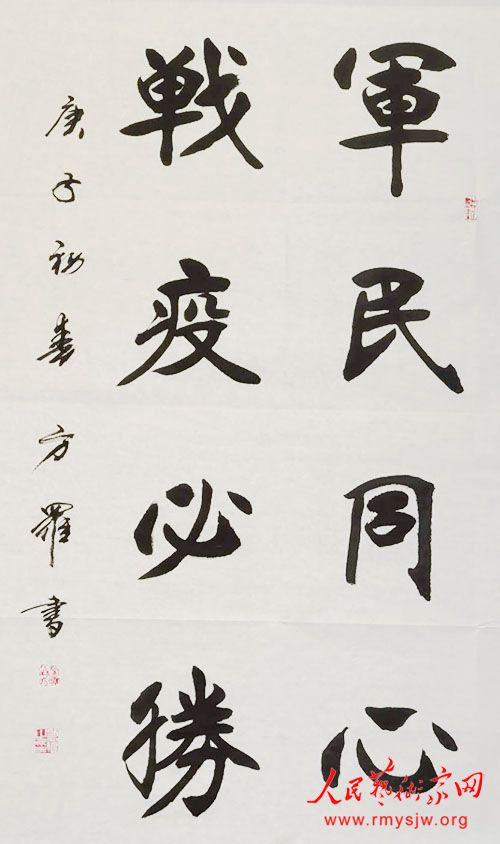 軍民同心
戦疫必勝
庚子初春方羅书
人民藝術家网
www.rmysjw.org